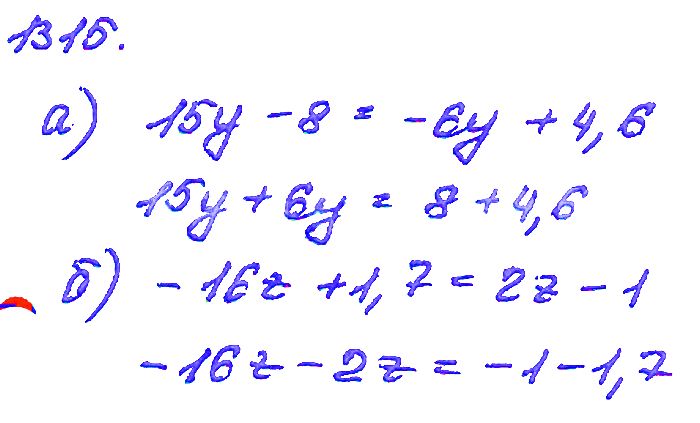 1315.
а) 15y - 8 = -6y + 4,6
15y + 6y = 8 + 4,6
б) -16z + 1,7 = 2z - 1
-16z - 2z = -1 - 1,7